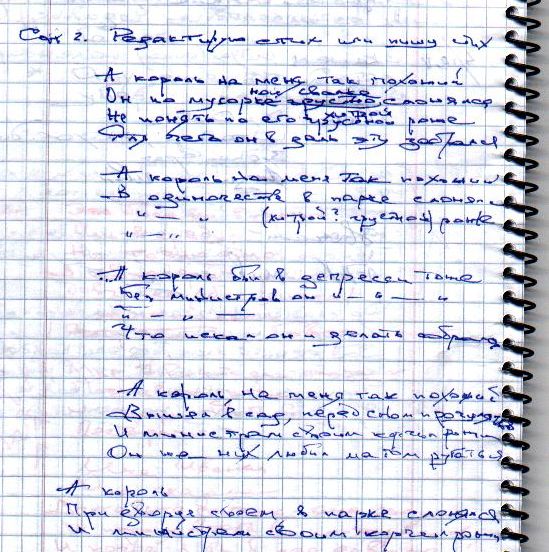 Сон 2. Редактирую стих или пишу их
А король на меня так похожий
Он по мусорке грустно слонялся
на свалке
Не понять по его грустной роже
хитрой
Для чего он в даль эту забрался
А король на меня так похожий
В одиночестве в парке слонялся
" — " (хитрой? грустной) роже
" — "
А король был в депрессии тоже
Без министров он " — " — "
" — "
Что искал он и делать собрался
А король, на меня так похожий
Вышел в сад, перед сном прогуляться
И министрам своим корчил рожи
Он на них любил матом ругаться
А король
При дворце своем в парке слонялся
И министрам своим корчил рожи